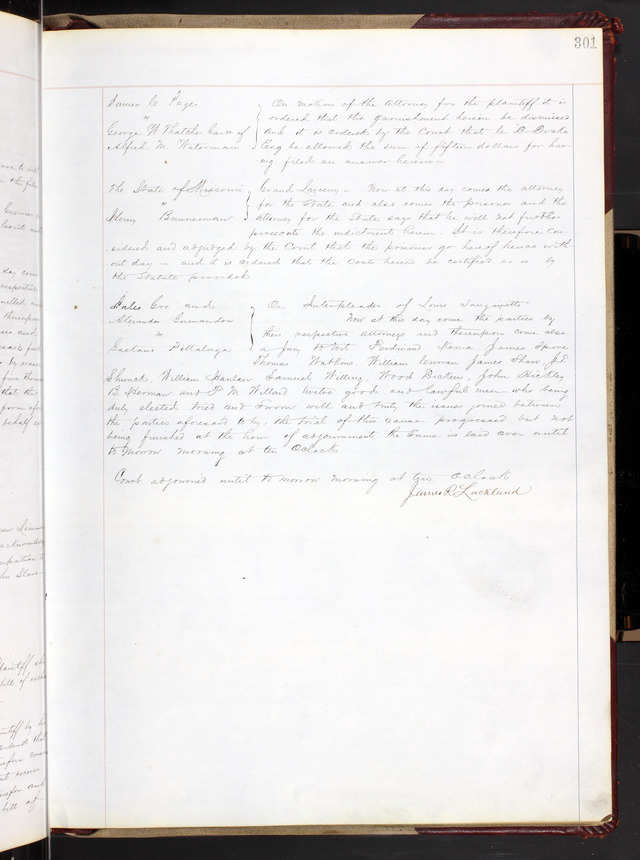 301
James C Page
"
George W Thatcher Garn of
Alfred M Waterman
On motion of the Attorney for the plaintiff it is
ordered that the garnishment herein be dismissed
and it is ordered by the Court that C D Drake
Esq be allowed the sum of fifteen dollars for hav-
ing filed an answer herein
The State of Missouri
"
Henry Bunneman
Grand Larceny - Now at this day comes the attorney
for the State and also comes the prisoner and the
attorney for the State says that he will not further
prosecute the indictment herein. It is therefore con-
sidered and adjudged by the Court that the prisoner go hereof hence with
out day - and it is ordered that the Costs herein be certified as is by
the Statute provided
Jules Cre and
Alexander
"
Gaetano Pittaluga
On Interpleader of Louis Sanguinette
Now at this day come the parties by
their respective Attorneys and thereupon come also
a jury to Wit Ferdinand James Spore
Thomas Watkins, William James Shaw, J D
Shunck, William Hanlan Samuel Willing, Wood John Hinkley
B. Herman and P. M. Willard twelve good and lawful men who being
duly elected tried and sworn well and truly the issues joined between
the parties aforesaid to try, the trial of this cause progressed but not
being finished at the hour of adjournment the same is laid over until
to Morrow morning at ten Oclock
Court adjourned until to Morrow morning at ten Oclock
James R Lackland